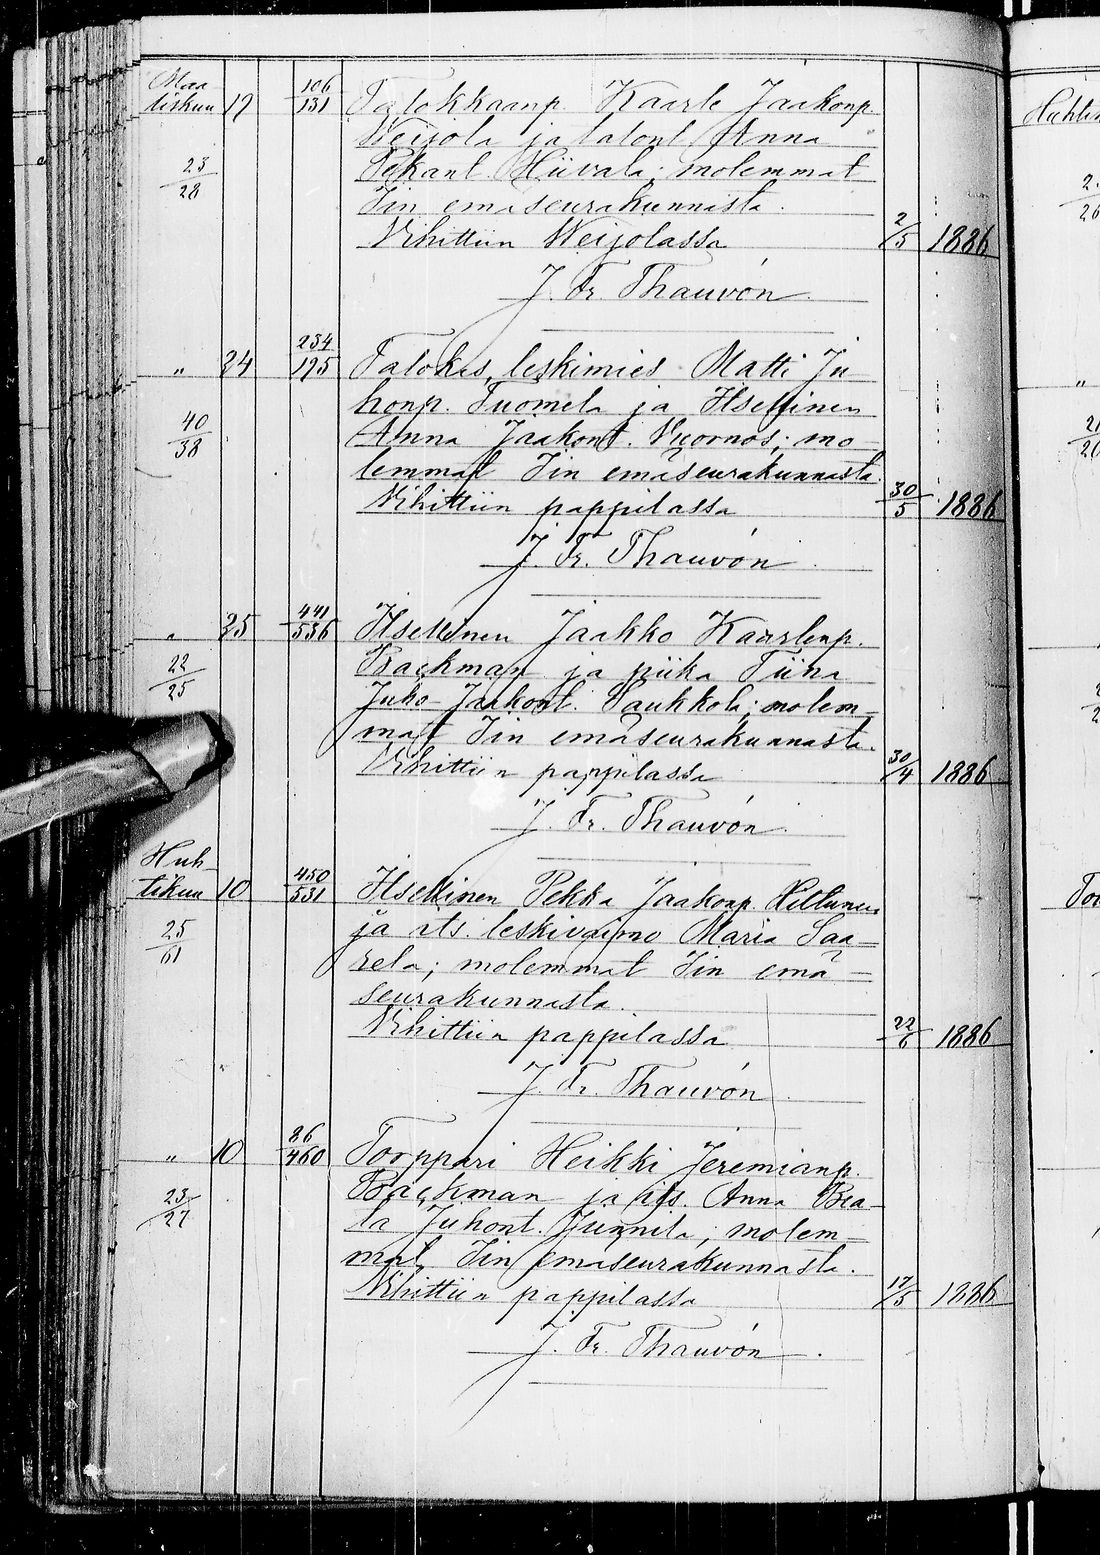 Maa-
liskuu 17 106/131 Talokkaanp. Kaarle Jaakonp.
Weijola ja talont. Anna
23/28 Pekant. Hiivala; molemmat
Iin emäseurakunnasta.
Vihittiin Weijolassa 2/5 1886
J. Fr. Thauvón
" 24 234/195 Talokas, leskimies Matti Ju
honp. Tuomela ja Itsellinen
40/38 Anna Jaakont. Vuornos; mo-
lemmat Iin emäseurakunnasta.
Vihittiin pappilassa 30/5 1886
J. Fr. Thauvón
" 25 441/536 Itsellinen Jaakko Kaarlenp.
22/25 Backman ja piika Tiina
Juho Jaakont. Paukkola; molem-
mat Iin emäseurakunnasta.
Vihittiin pappilassa 30/4 1886
J. Fr. Thauvón
Huh-
tikuu 10 450/531 Itsellinen Pekka Jaakonp. Kiltunen
25/61 ja its. leskivaimo Maria Saa-
rela; molemmat Iin emä-
seurakunnasta.
Vihittiin pappilassa 22/6 1886
J. Fr. Thauvón
" 10 86/460 Torppari Heikki Jeremianp.
23/27 Backman ja its. Anna Bea-
ta Juhont. Junnila; molem-
mat Iin emäseurakunnasta.
Vihittiin pappilassa 17/5 1886
J. Fr. Thauvón